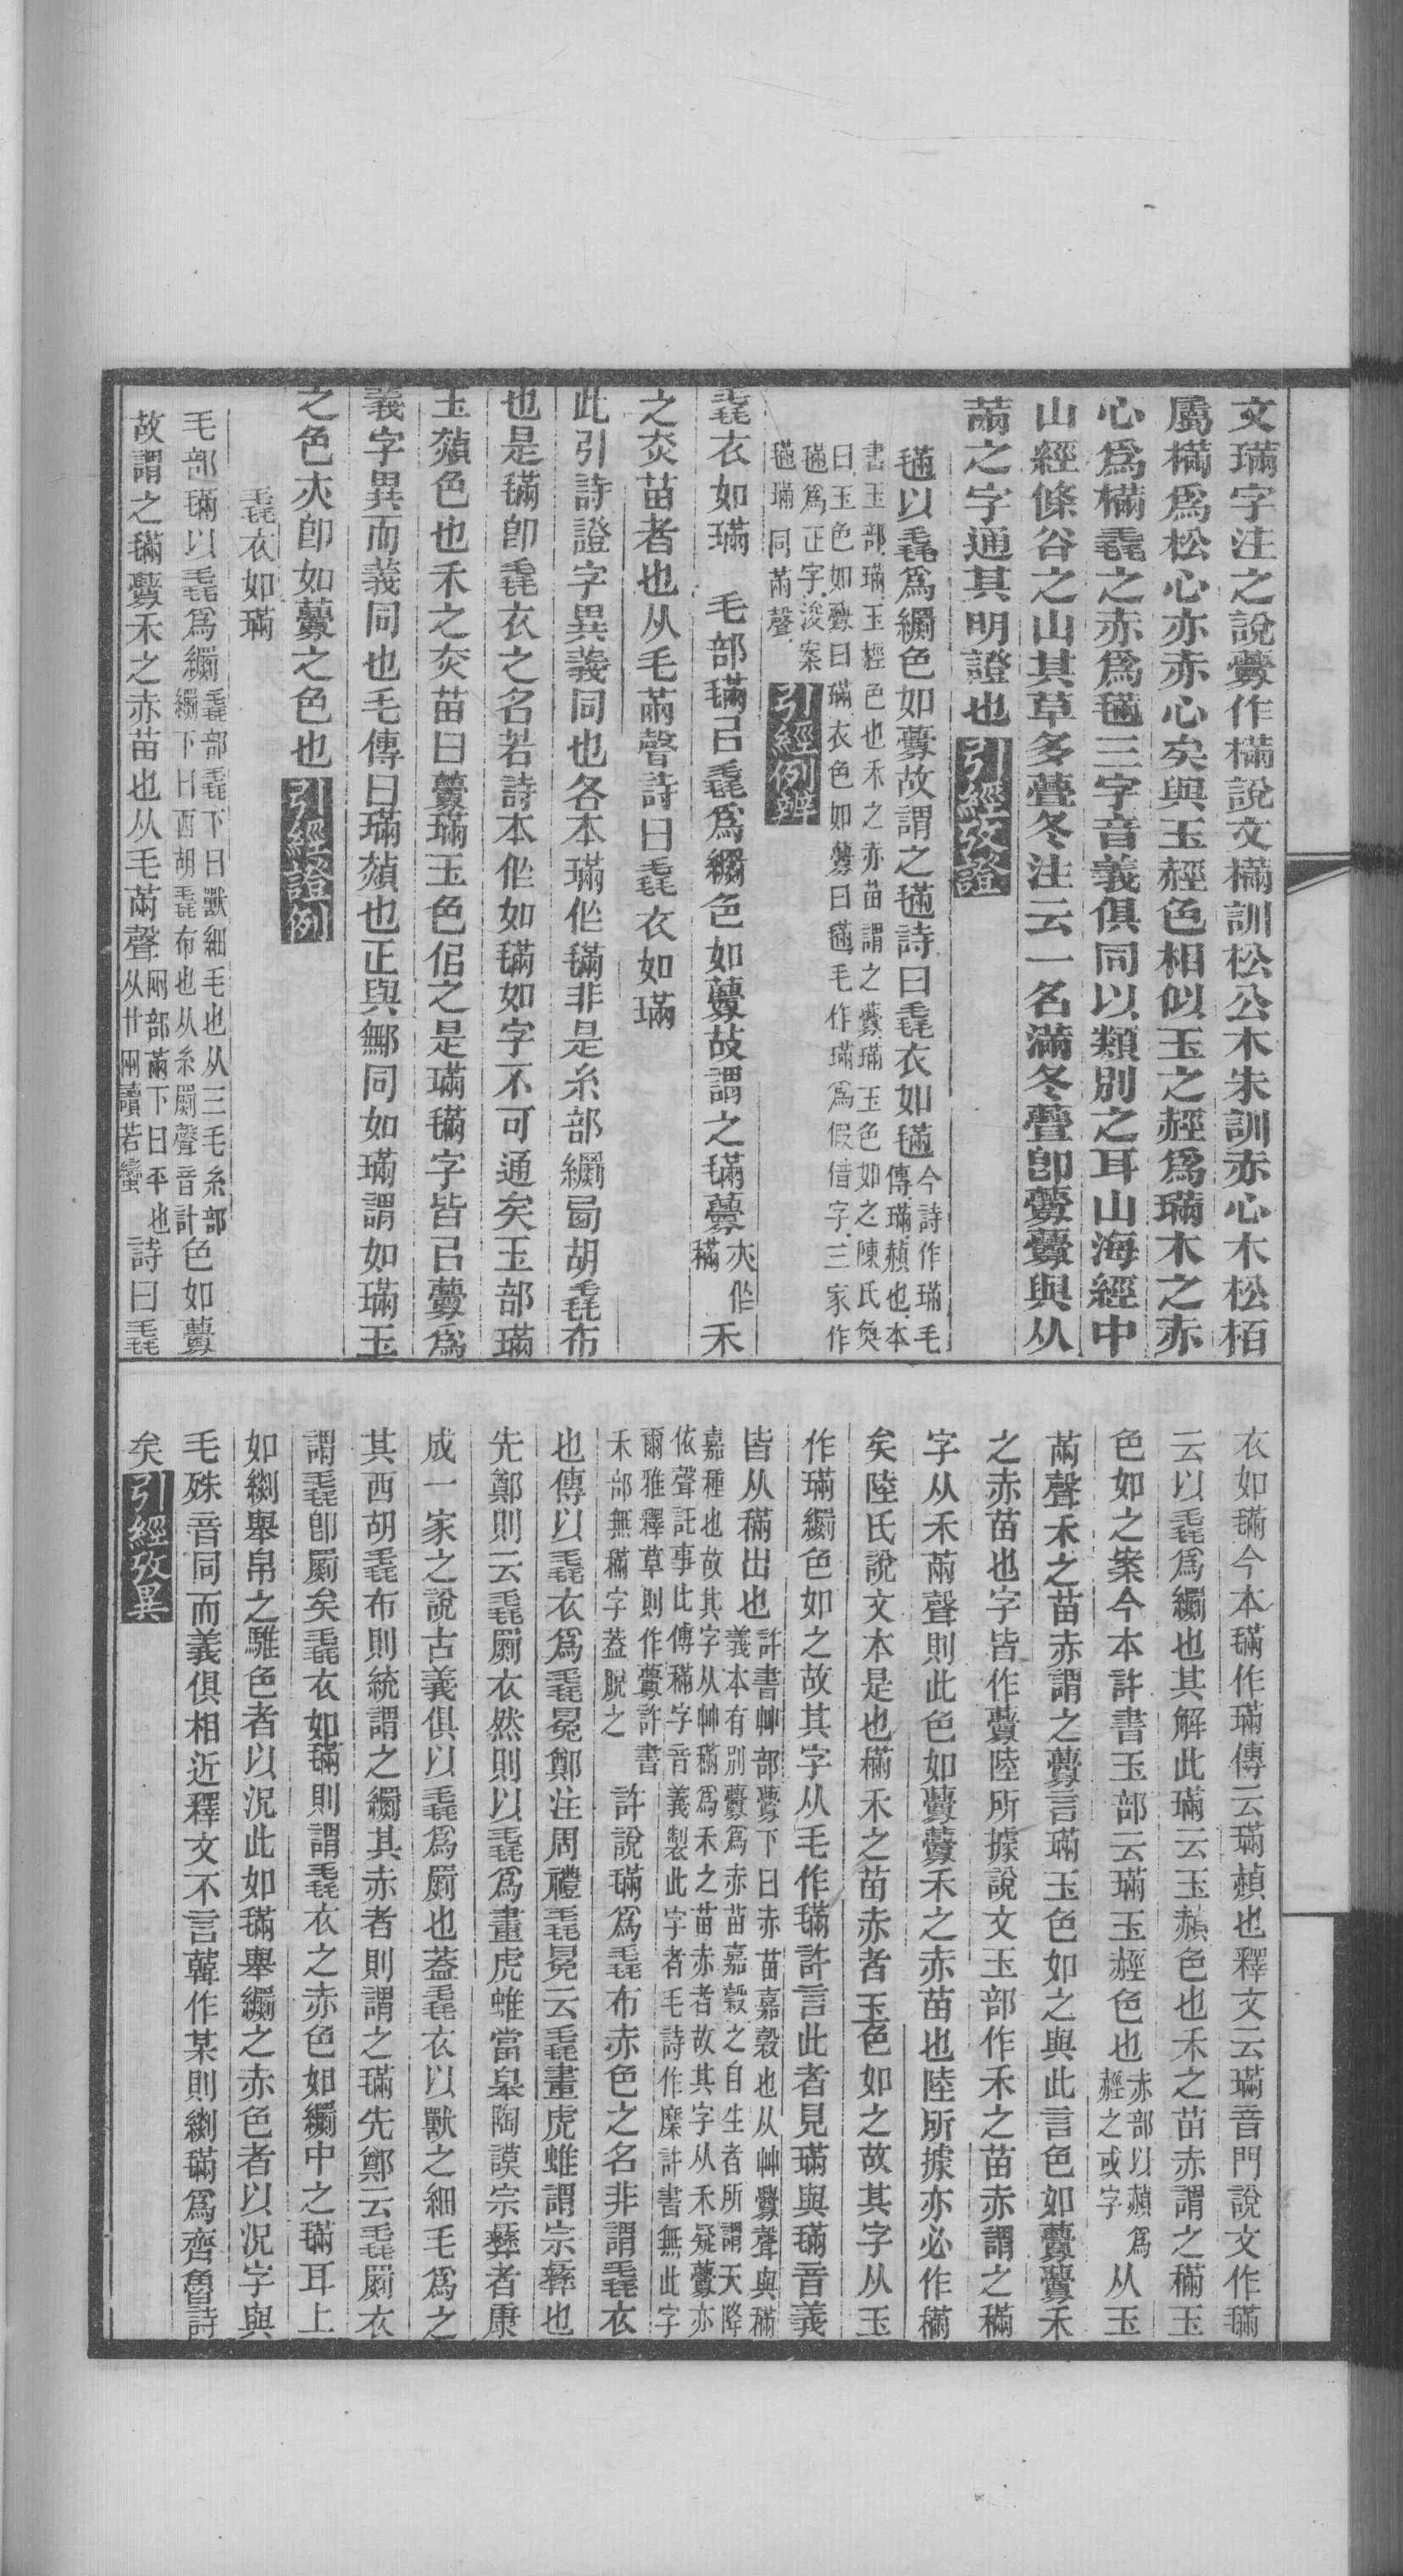 文璊字注之說虋作樠說文樠訓松公木朱訓赤心木松栢
屬樠爲松心亦赤心矣與玉䞓色相似玉之䞓爲璊木之赤
心爲樠毳之赤爲㲈三字音義俱同以類別之耳山海經中
山經條谷之山其草多虋冬注云一名滿冬虋卽虋虋與从
㒼之字通其明證也引經攷證
㲈以毳爲繝色如虋故謂之㲈詩曰毳衣如㲈今詩作璊毛
傳璊赬也本
書玉部璊玉䞓色也禾之赤苗謂之虋璊玉色如之陳氏奐
曰玉色如虋曰璊衣色如虋曰㲈毛作璊爲假借字三家作
㲈爲正字浚案
㲈璊同㒼聲引經例辨
毳衣如璊　毛部㲈㠯毳爲繝色如虋故謂之㲈虋夾作
穈禾
之烾苗者也从毛㒼聲詩曰毳衣如璊
此引詩證字異義同也各本璊作㲈非是糸部繝㔷胡毳布
也是㲈卽毳衣之名若詩本作如㲈如字不可通矣玉部璊
玉赬色也禾之烾苗曰虋璊玉色佀之是璊㲈字皆㠯虋爲
義字異而義同也毛傳曰璊赬也正與鄦同如璊謂如璊玉
之色夾卽如虋之色也引經證例
毳衣如璊
毛部㲈以毳爲繝毳部毳下曰獸細毛也从三毛糸部
繝下曰西胡毳布也从糸罽聲音計色如虋
故謂之㲈虋禾之赤苗也从毛㒼聲㒼部㒼下曰平也
从廿㒳讀若蠻詩曰毳
衣如㲈今本㲈作璊傳云璊赬也釋文云璊音門說文作㲈
云以毳爲繝也其解此璊云玉赬色也禾之苗赤謂之穈玉
色如之案今本許書玉部云璊玉䞓色也赤部以赬爲
䞓之或字从玉
㒼聲禾之苗赤謂之虋言璊玉色如之與此言色如虋虋禾
之赤苗也字皆作虋陸所據說文玉部作禾之苗赤謂之穈
字从禾㒼聲則此色如虋虋禾之赤苗也陸所據亦必作穈
矣陸氏說文本是也穈禾之苗赤者玉色如之故其字从玉
作璊繝色如之故其字从毛作㲈許言此者見璊與㲈音義
皆从穈出也許書艸部虋下曰赤苗嘉穀也从艸釁聲與穈
義本有別虋爲赤苗嘉穀之自生者所謂天降
嘉種也故其字从艸穈爲禾之苗赤者故其字从禾疑虋亦
依聲託事比傳穈字音義製此字者毛詩作糜許書無此字
爾雅釋草則作虋許書
禾部無穈字蓋脫之許說㲈爲毳布赤色之名非謂毳衣
也傳以毳衣爲毳冕鄭注周禮毳冕云毳畫虎蜼謂宗彝也
先鄭則云毳罽衣然則以毳爲畫虎蜼當皋陶謨宗彝者康
成一家之說古義俱以毳爲罽也蓋毳衣以獸之細毛爲之
其西胡毳布則統謂之繝其赤者則謂之㲈先鄭云毳罽衣
謂毳卽罽矣毳衣如㲈則謂毳衣之赤色如繝中之㲈耳上
如緅舉帛之騅色者以況此如㲈舉繝之赤色者以況字與
毛殊音同而義俱相近釋文不言韓作某則緅㲈爲齊魯詩
矣引經攷異